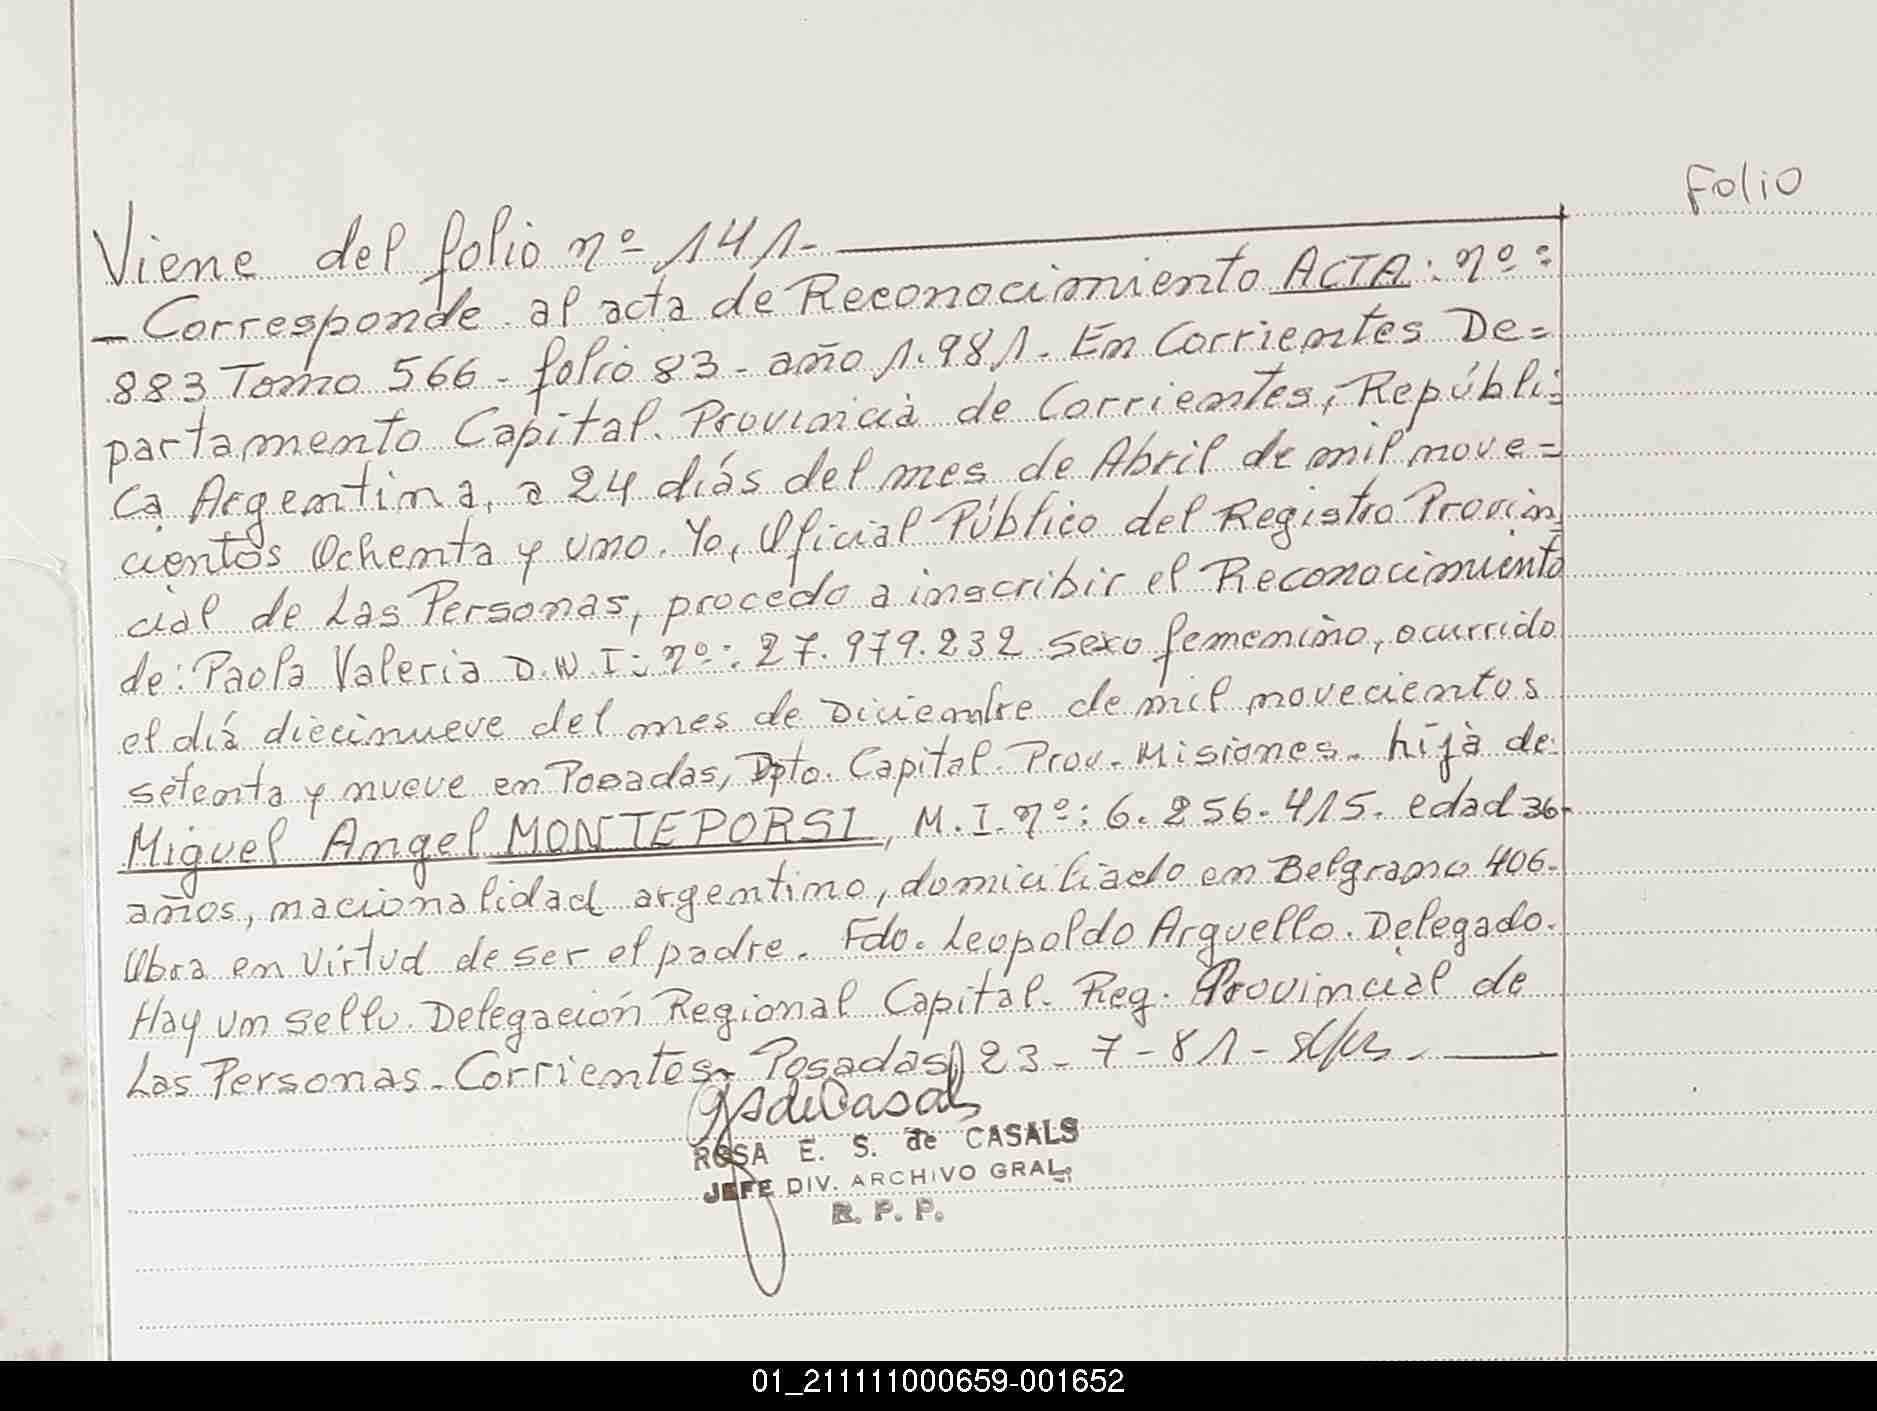 Folio
Viene del folio nº 141-
- Corresponde al acta de Reconocimiento ACTA: nº:
883 Tomo 566 - folio 83 - año 1.981. En Corrientes De=
partamento Capital. Provincia de Corrientes, Repúbli=
ca Argentina, a 24 días del mes de Abril de mil nove=
cientos Ochenta y uno. Yo, Oficial Público del Registro Provin
cial de Las Personas, procedo a inscribir el Reconocimiento
de: Paola Valeria D.N.I: nº: 27.979.232 sexo femenino, ocurrido
el día diecinueve del mes de Diciembre de mil novecientos
setenta y nueve en Posadas, Dpto. Capital. Prov. Misiones. hija de
Miguel Angel MONTEPORSI, M.I. nº: 6.256.415. edad 36-
años, nacionalidad argentino, domiciliado en Belgrano 406-
Obra en virtud de ser el padre. Fdo. Leopoldo Arguello. Delegado.
Hay un sello. Delegación Regional Capital. Reg. Provincial de
Las Personas - Corrientes - Posadas, 23-7-81-
ROSA E. S. de CASALS
JEFE DIV. ARCHIVO GRAL.
R. P. P.
01_211111000659-001652